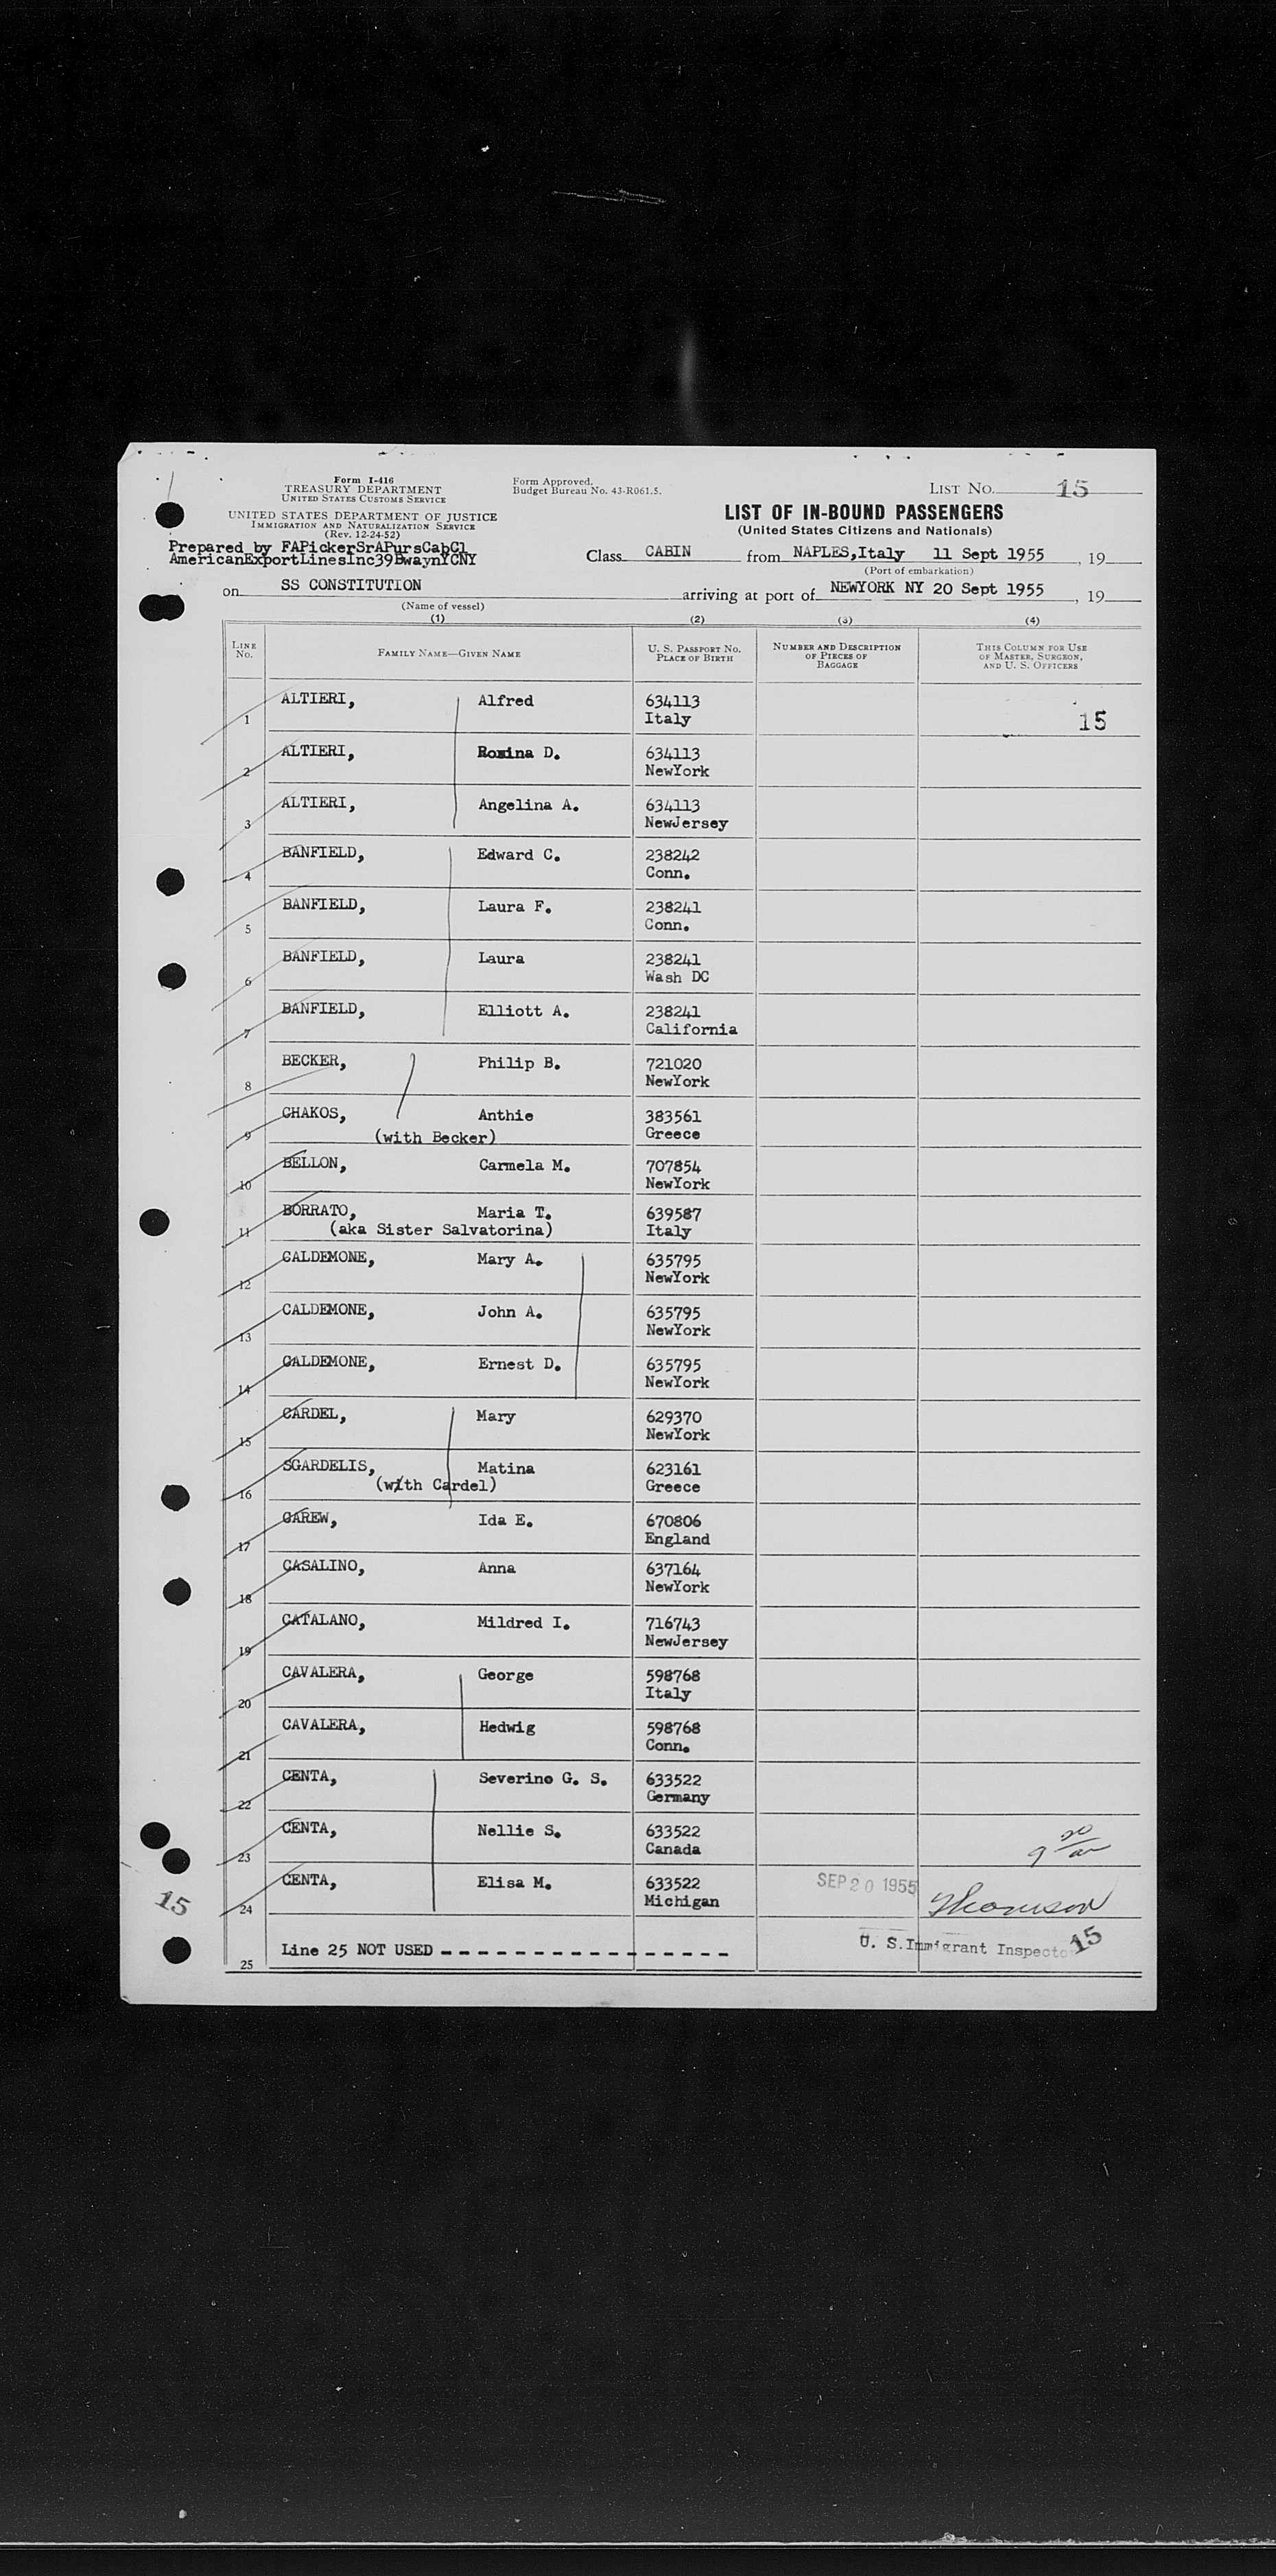 Form I-416
TREASURY DEPARTMENT
UNITED STATES CUSTOMS SERVICE
Form Approved.
Budget Bureau No. 43-R061.5.
LIST NO. 15
UNITED STATES DEPARTMENT OF JUSTICE
IMMIGRATION AND NATURALIZATION SERVICE
(Rev. 12-24-52)
LIST OF IN-BOUND PASSENGERS
(United States Citizens and Nationals)
Prepared by FAPickerSrAPursCabCl
AmericanExportLinesInc39BwaynYCNY
Class CABIN from NAPLES,Italy 11 Sept 1955, 19
(Port of embarkation)
on SS CONSTITUTION arriving at port of NEWYORK NY 20 Sept 1955, 19
(Name of vessel)
(1) (2) (3) (4)
LINE NO. FAMILY NAME—GIVEN NAME U. S. PASSPORT NO. PLACE OF BIRTH NUMBER AND DESCRIPTION OF PIECES OF BAGGAGE THIS COLUMN FOR USE OF MASTER, SURGEON, AND U. S. OFFICERS
1 ALTIERI, Alfred 634113
Italy 15
2 ALTIERI, Romina D. 634113
NewYork
3 ALTIERI, Angelina A. 634113
NewJersey
4 BANFIELD, Edward C. 238242
Conn.
5 BANFIELD, Laura F. 238241
Conn.
6 BANFIELD, Laura 238241
Wash DC
7 BANFIELD, Elliott A. 238241
California
8 BECKER, Philip B. 721020
NewYork
9 CHAKOS, Anthie 383561
(with Becker) Greece
10 BELLON, Carmela M. 707854
NewYork
11 BORRATO, Maria T. 639587
(aka Sister Salvatorina) Italy
12 CALDEMONE, Mary A. 635795
NewYork
13 CALDEMONE, John A. 635795
NewYork
14 CALDEMONE, Ernest D. 635795
NewYork
15 CARDEL, Mary 629370
NewYork
16 SGARDELIS, Matina 623161
(with Cardel) Greece
17 CAREW, Ida E. 670806
England
18 CASALINO, Anna 637164
NewYork
19 CATALANO, Mildred I. 716743
NewJersey
20 CAVALERA, George 598768
Italy
21 CAVALERA, Hedwig 598768
Conn.
22 CENTA, Severino G. S. 633522
Germany
23 CENTA, Nellie S. 633522
Canada
24 CENTA, Elisa M. 633522
Michigan
SEP 20 1955
15
25 Line 25 NOT USED - - - - - - - - - - - - - - - -
U. S. Immigrant Inspecto
15